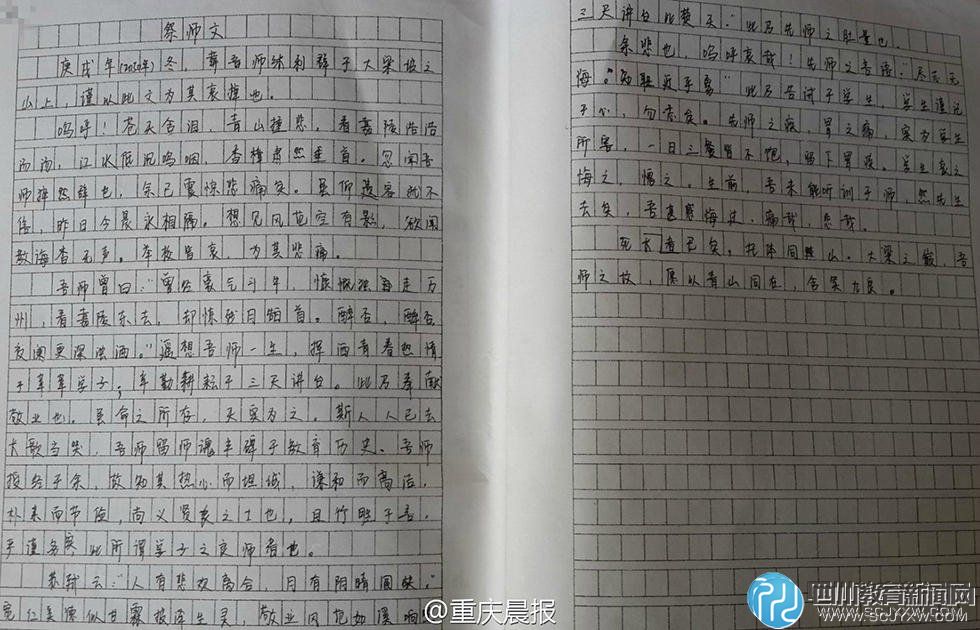 祭师文
庚戌年(2010年)冬,葬吾师张利群于大梁坡之
山上,谨以此文为其哀悼也。
呜呼!苍天含泪,青山撞悲。看嘉陵浩浩
而汤,江水低沉呜咽,香樟肃然垂首。忽闻吾
师择然辞也,余已震惊悲痛矣。虽仰遗容犹不
信,昨日今晨永相隔。想见风范空有影,欲闻
教诲杳无声。举校皆哀,为其悲痛。
吾师曾曰:"曾经豪气斗牛,慷慨独自走万
州,看嘉陵东去,却惊我月如首。醉否,醉否
夜阑更深浊酒。"遥想吾师一生,挥洒青春热情
于莘莘学子,辛勤耕耘于三尺讲台。此乃奉献
敬业也。虽命之所存,天实为之。斯人人已去
大歌当哭,吾师留师魂丰碑于教育历史。吾师
授给于余,故知其热心而坦诚,谦和而高洁,
朴素而节俭,尚义贤哀之士也,且竹胜于吾,
平谨务实,此所谓学子之良师者也。
苏轼云:"人有悲欢离合,月有阴晴圆缺。"
宽仁美德似甘霖披泽生灵,敬业风范如溪响
三尺讲台比赞天。"此乃先师之肚量也。
余悲也,呜呼哀哉!先师之告语:"
海。"
此乃告诫于学生,学生谨记
于心,勿忘矣。先师之疾,胃之痛,实为学生
所害,一日三餐皆不饱,留下胃疾。学生哀之
悔之,惜之。生前,吾未能听训于师,然先生
去矣,吾甚感悔史,痛哉,悲哉。
死者已矣,托体同山。大梁之巅,吾
师之故,愿以青山同在,含笑九泉。
@重庆晨报
四川教育新闻网
WWW.SCJYXW.COM